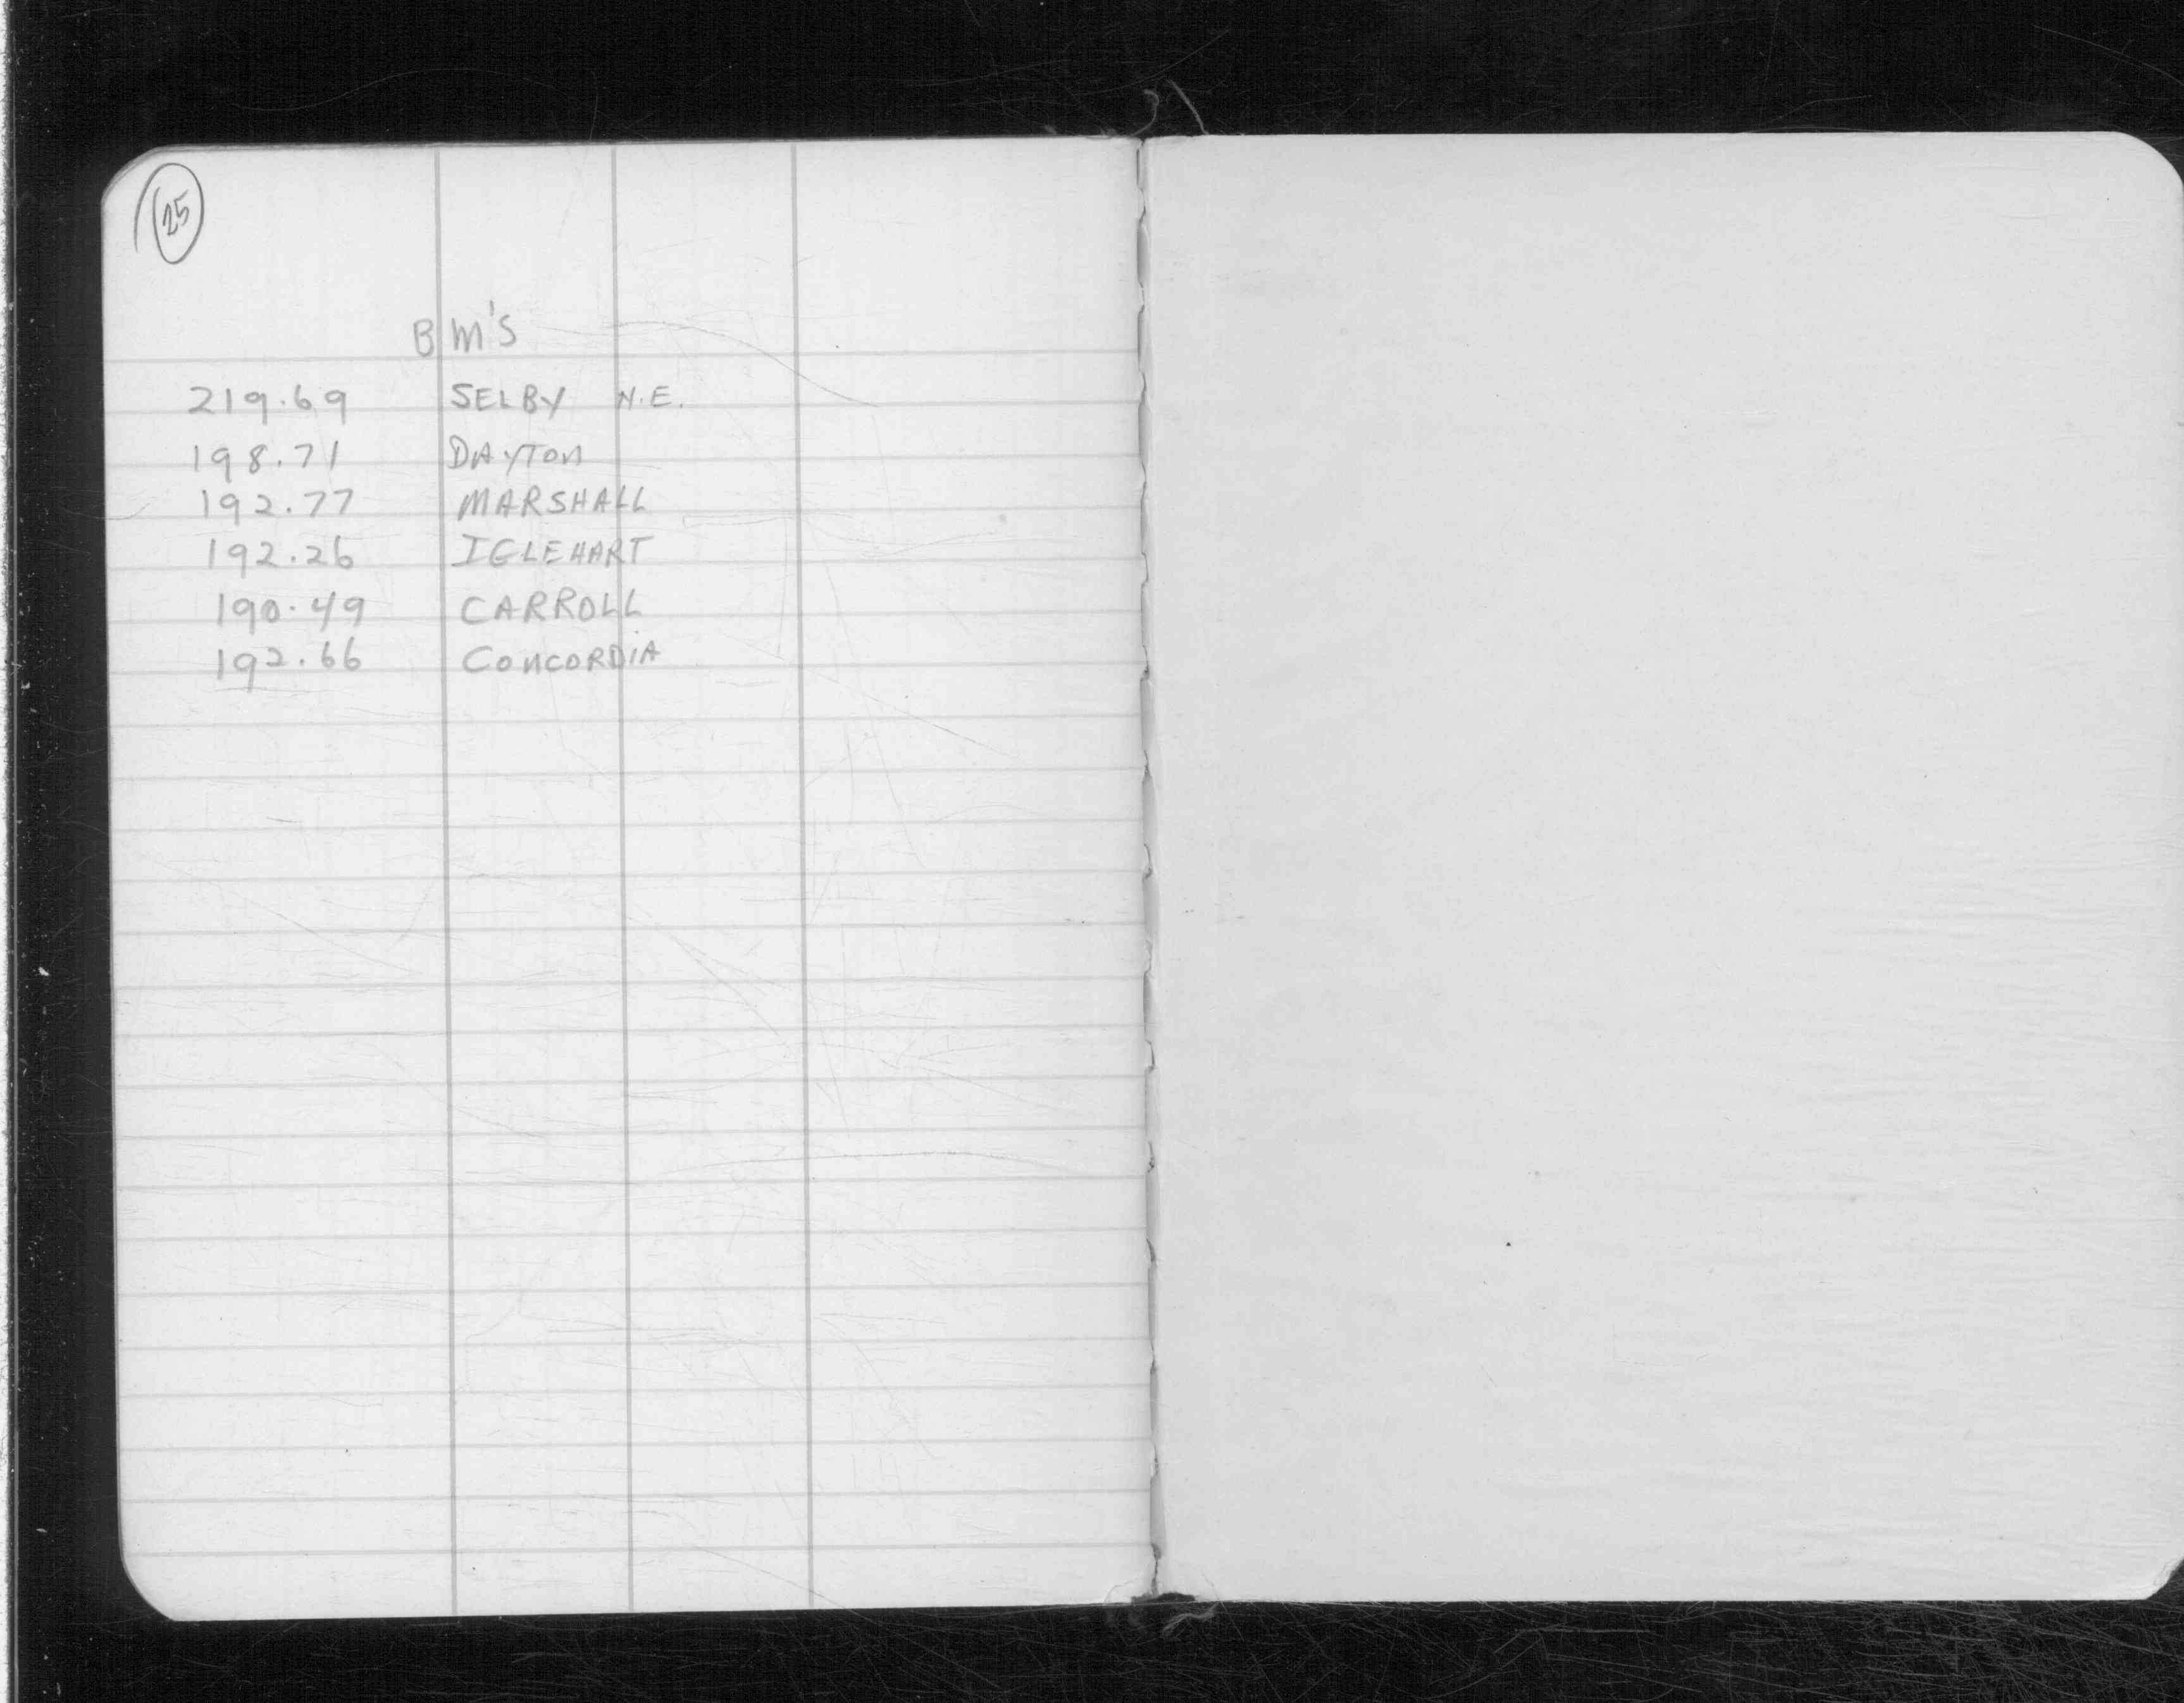 25
BM'S
219.69 SELBY N.E.
198.71 DAYTON
192.77 MARSHALL
192.26 IGLEHART
190.49 CARROLL
192.66 CONCORDIA